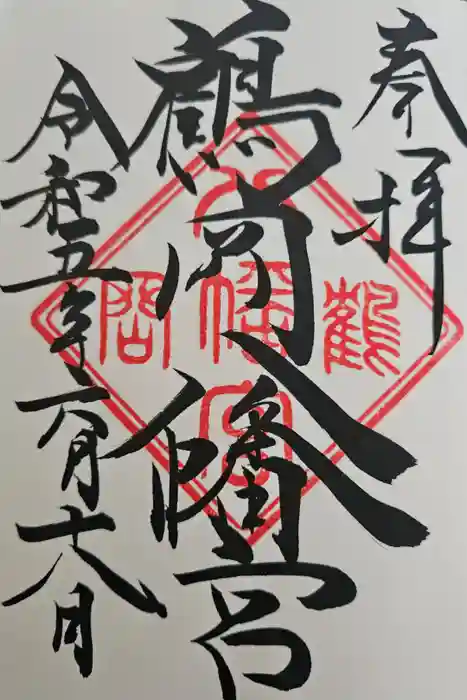 奉拝
鶴岡八幡宮
令和五年六月十八日
鶴
八幡宮
岡